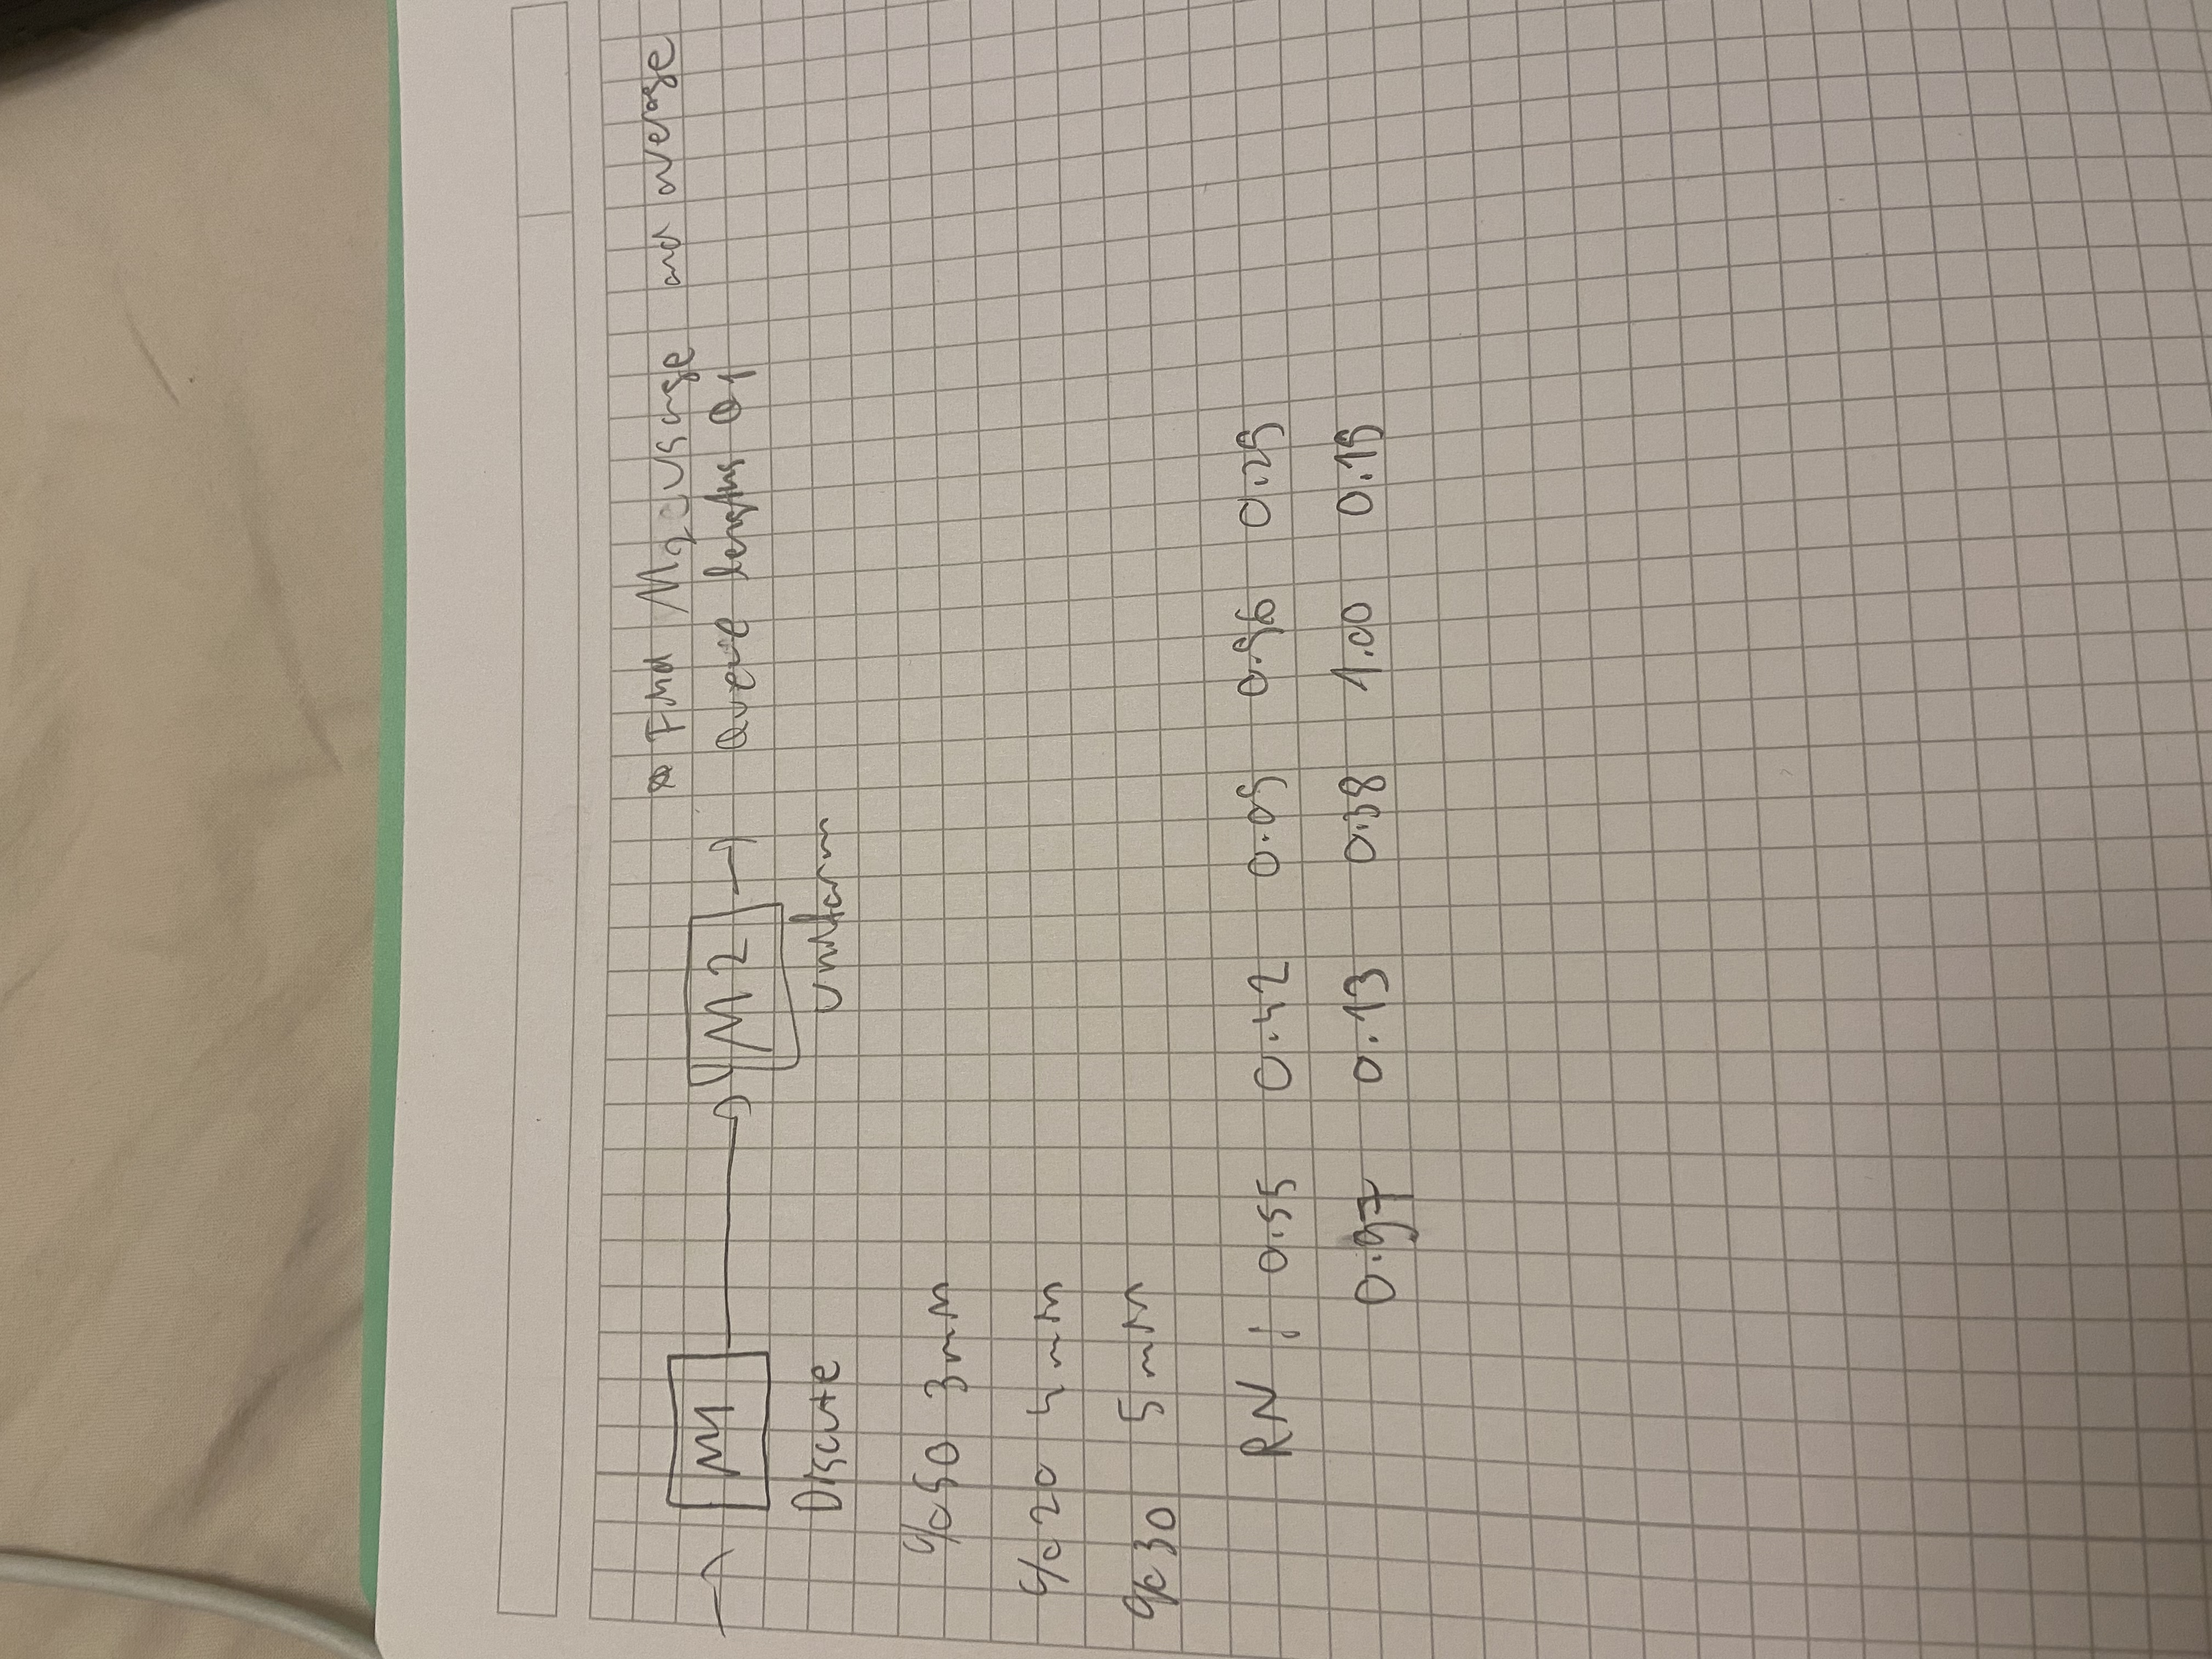 * Find M2 usage and average
queue lengths Q1
M1 M2
Discute Uniform
%50 3min
%20 4min
%30 5min
RN : 0.55 0.42 0.09 0.96 0.29
0.97 0.13 0.38 1.00 0.19